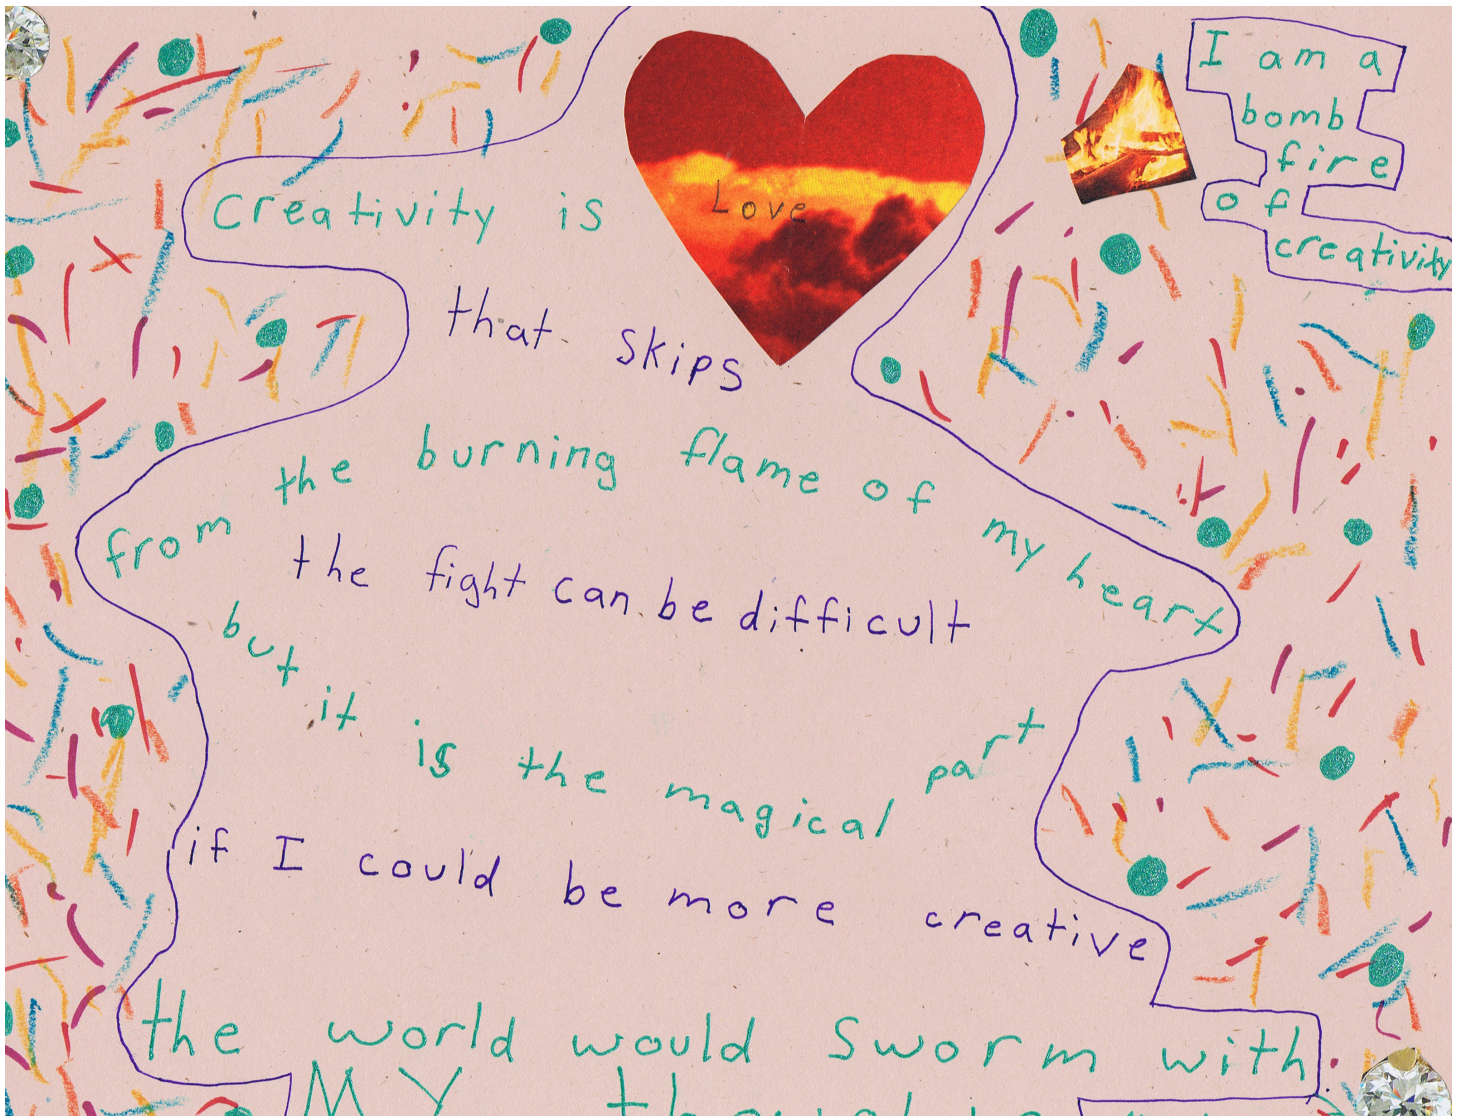 I am a
bomb
fire
of
creativity
Creativity is
Love
that skips
from the burning flame of my heart
the fight can be difficult
but it is the magical part
if I could be more creative
the world would sworm with
MY